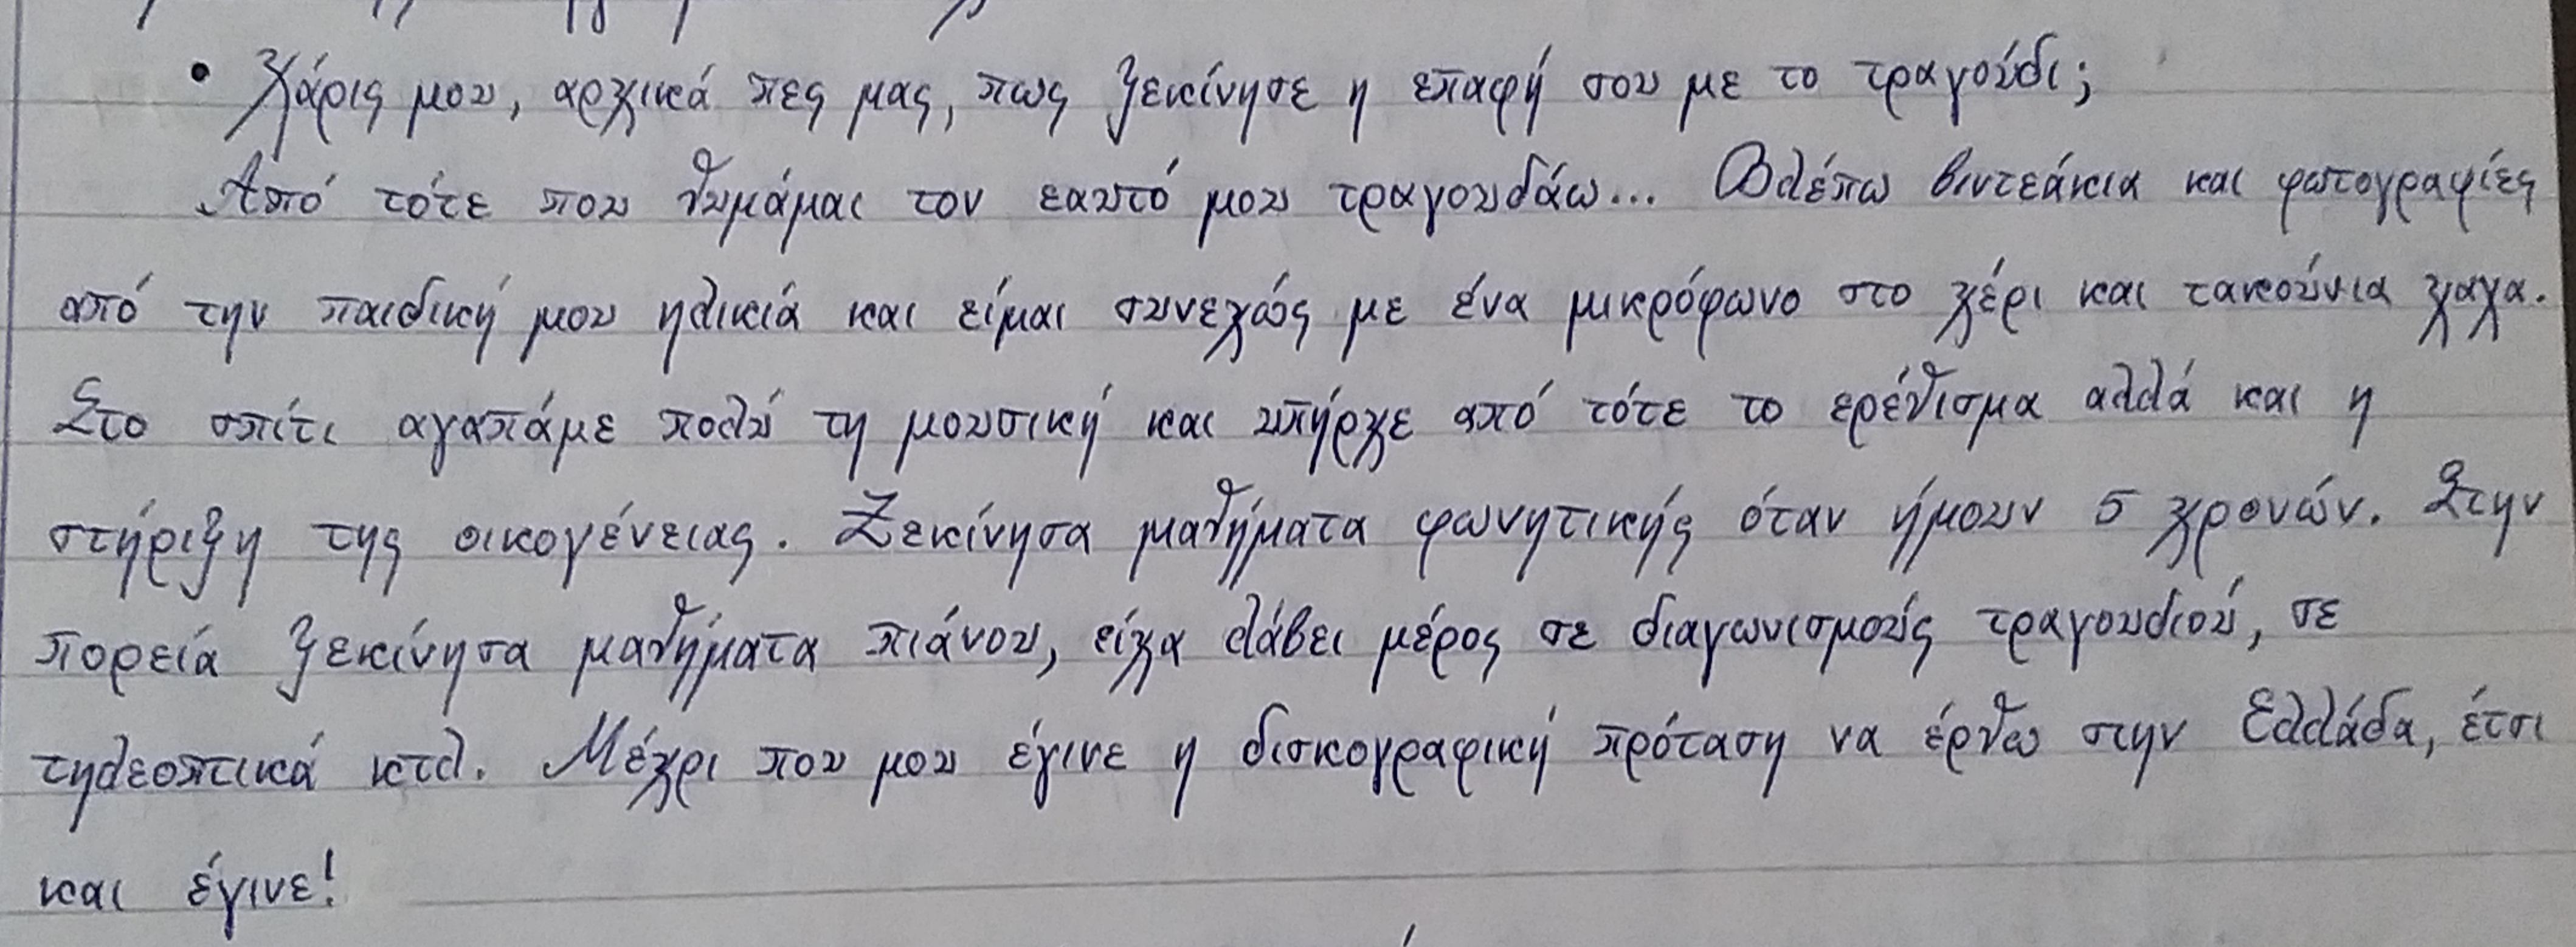 • Χάρις μου, αρχικά πες μας, πως ξεκίνησε η επαφή σου με το τραγούδι;
Από τότε που θυμάμαι τον εαυτό μου τραγουδάω... Βλέπω βιντεάκια και φωτογραφίες
από την παιδική μου ηλικία και είμαι συνεχώς με ένα μικρόφωνο στο χέρι και τακούνια χαχα.
Στο σπίτι αγαπάμε πολύ τη μουσική και υπήρχε από τότε το ερέθισμα αλλά και η
στήριξη της οικογένειας. Ξεκίνησα μαθήματα φωνητικής όταν ήμουν 5 χρονών. Στην
πορεία ξεκίνησα μαθήματα πιάνου, είχα λάβει μέρος σε διαγωνισμούς τραγουδιού, σε
τηλεοπτικά κτλ. Μέχρι που μου έγινε η δισκογραφική πρόταση να έρθω στην Ελλάδα, έτσι
και έγινε!